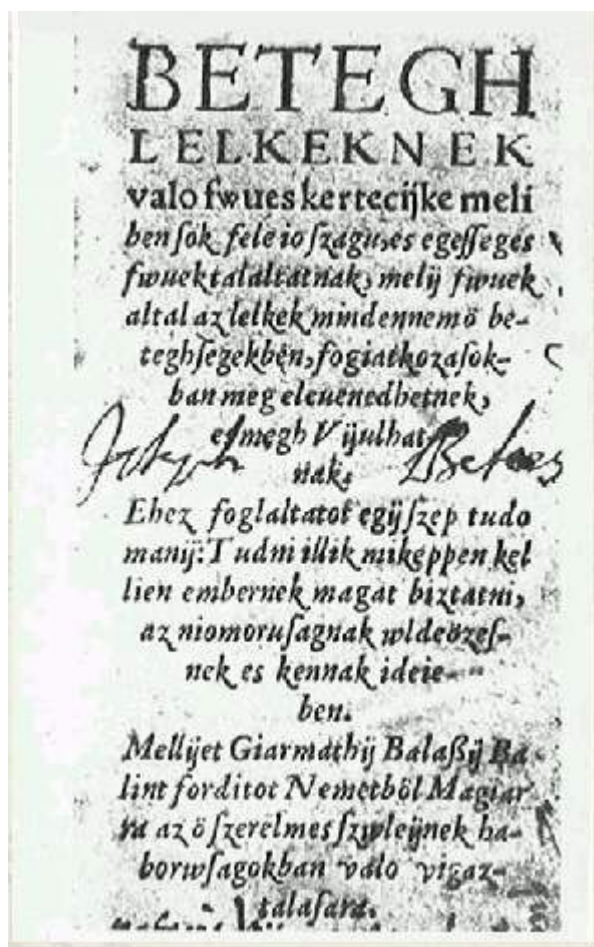 BETEGH
LELKEKNEK
valo fwues kertecijke meli
ben ſok fele io ſzagu, es egeſſeges
fwuek talaltatnak, melij fwuek
altal az lelkek mindennemö be-
teghſegekben, fogiatkozaſok-
ban meg eleuenedhetnek,
eſ megh Vijulhat
nak.
Ehez foglaltatot egij ſzep tudo
manij: Tudni illik mikeppen kel
lien embernek magat biztatni,
az niomoruſagnak wldeözeſ-
nek es kennak ideie-
ben.
Mellijet Giarmathij Balaßij Ba
lint forditot Nemetböl Magiar
ra az ö ſzerelmes ſzwleijnek ha-
borwſagokban valo vigaz-
talaſara.